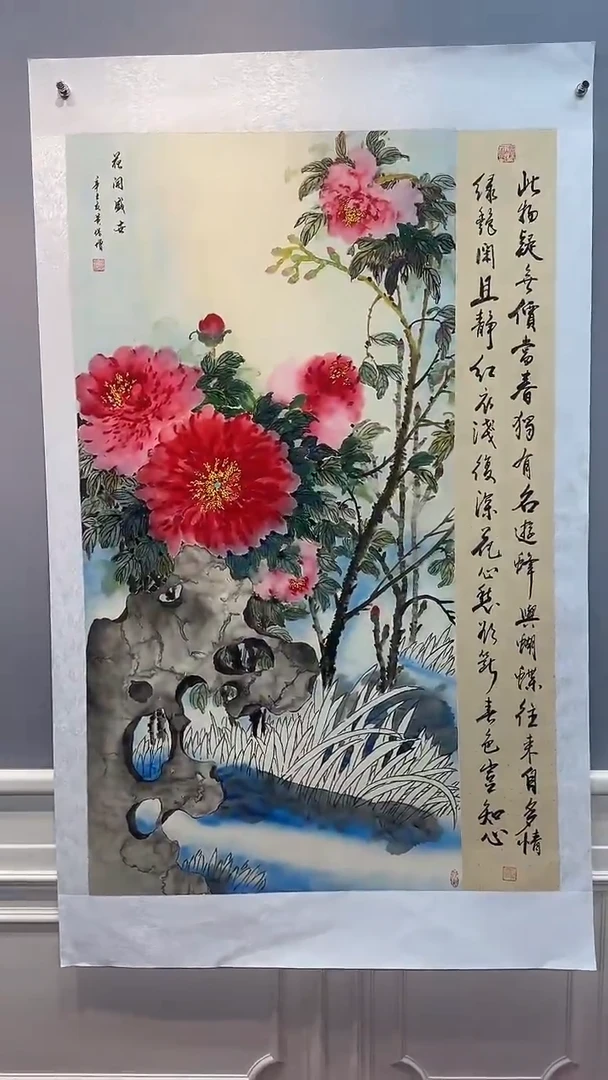 此物疑無價當春獨有名遊蜂與蝴蝶往來自多情
綠艷閑且靜紅衣淺復深花心愁欲斷春色豈知心
花開盛世
辛丑